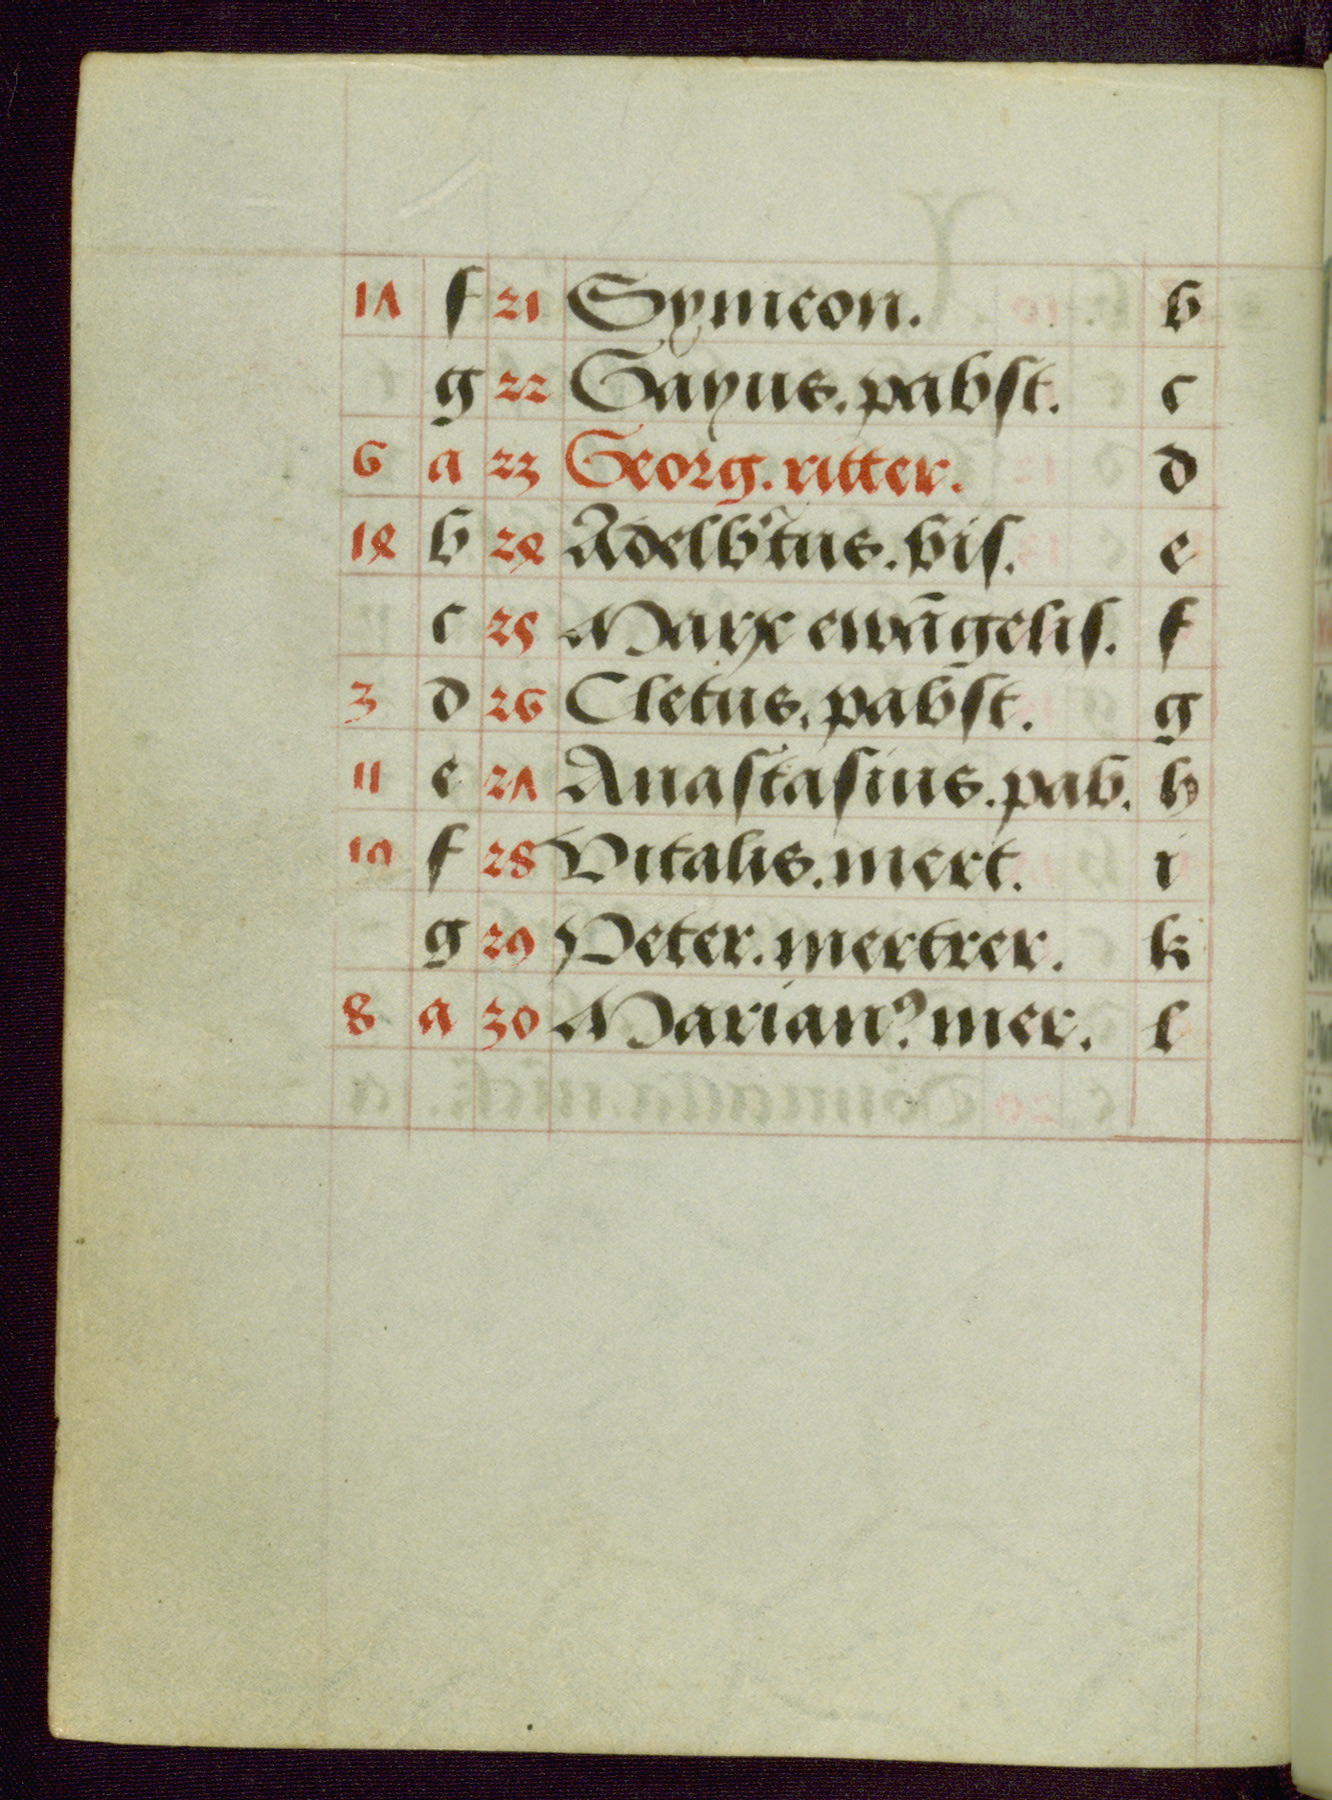 17 f 21 Symeon. b
g 22 Gayus. pabst. c
6 a 23 Georg. ritter. d
14 b 24 Adelb'tus. bis. e
c 25 Marx ewāgelis. f
3 d 26 Cletus. pabst. g
11 e 27 Anastasius. pab. h
19 f 28 Vitalis. mert. i
g 29 Peter. mertrer. k
8 a 30 Marianꝰ mer. l